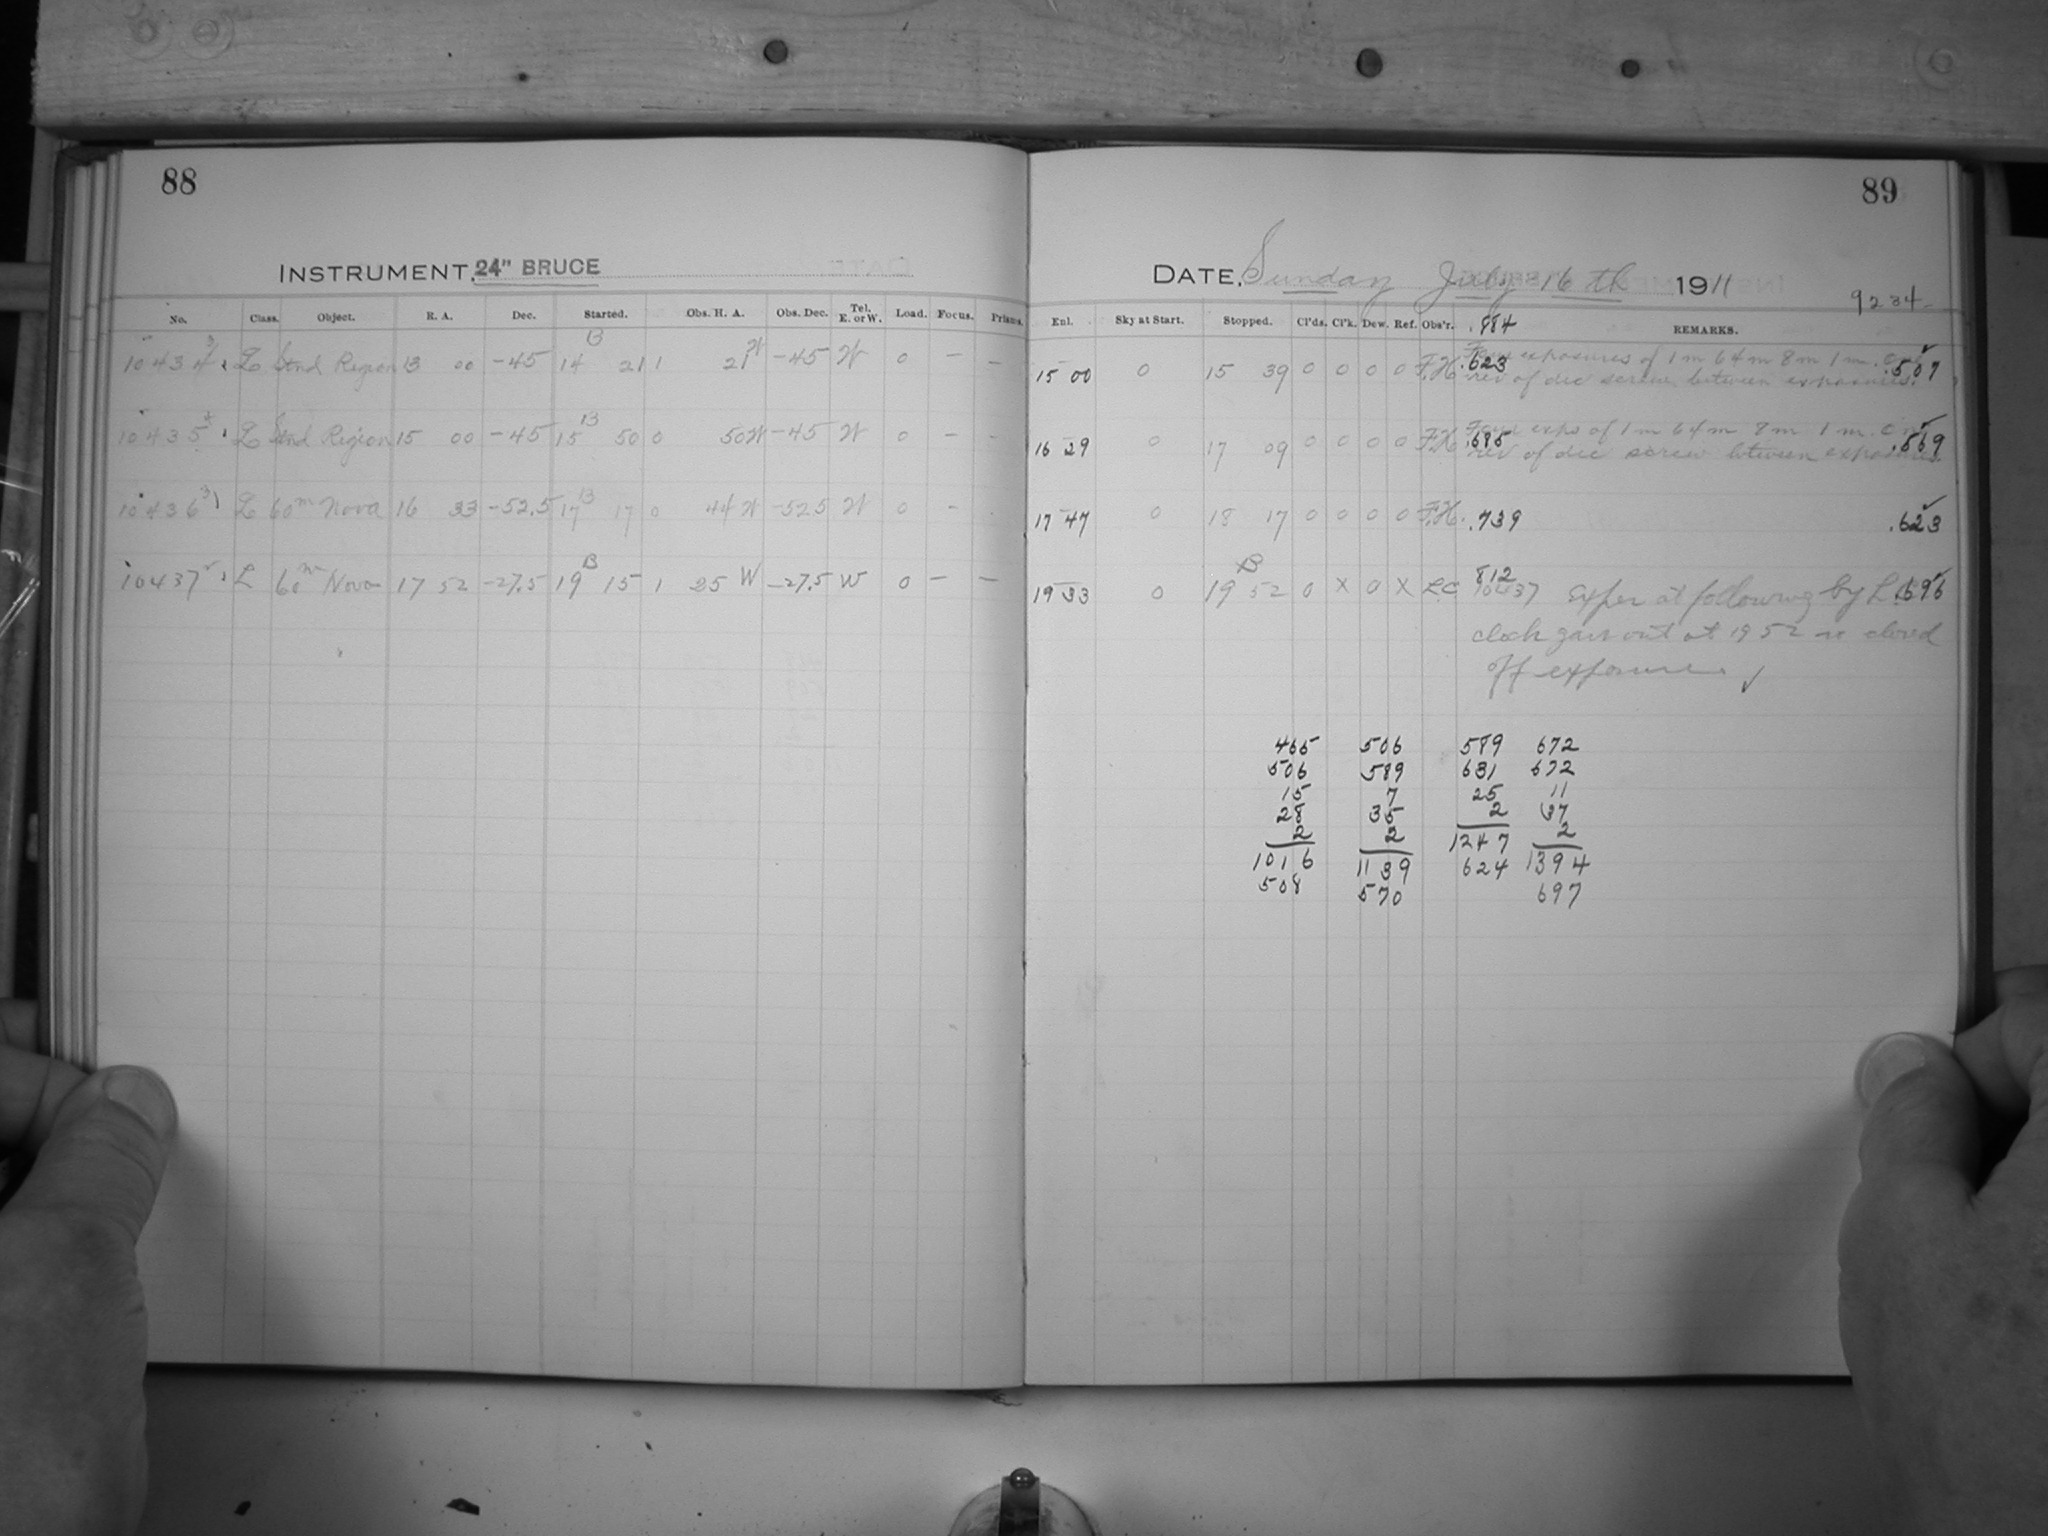 88
89
INSTRUMENT, 24" BRUCE
DATE, Sunday July 16th 1911
9234
No. Class. Object. R. A. Dec. Started. Obs. H. A. Obs. Dec. Tel. E. or W. Load. Focus. Prisms.
Enl. Sky at Start. Stopped. Cl'ds. Cl'k. Dew. Ref. Obs'r. REMARKS.
.884
10434 L Stnd Region 13 00 -45 14 B 21 1 21 W -45 W 0 - -
15 00 0 15 39 0 0 0 0 F.H. .623 Four exposures of 1m 64m 8m 1m. One .507
rev of dec screw between exposures.
10435 L Stnd Region 15 00 -45 15 B 50 0 50 W -45 W 0 - -
16 29 0 17 09 0 0 0 0 F.H. .685 Four expo of 1m 64m 8m 1m. One .569
rev of dec screw between exposures.
10436 L 60m Nova 16 33 -52.5 17 B 17 0 44 W -52.5 W 0 -
17 47 0 18 17 0 0 0 0 F.H. .739 .623
10437 L 60m Nova 17 52 -27.5 19 B 15 1 25 W -27.5 W 0 - -
19 33 0 19 B 52 0 X 0 X L.C. 812 10437 Exper at following by L. .696
clock gave out at 19 52 so closed
off exposure ✓
465 506 589 672
506 589 631 672
15 7 25 11
28 35 2 37
2 2 1247 2
1016 1139 624 1394
508 570 697